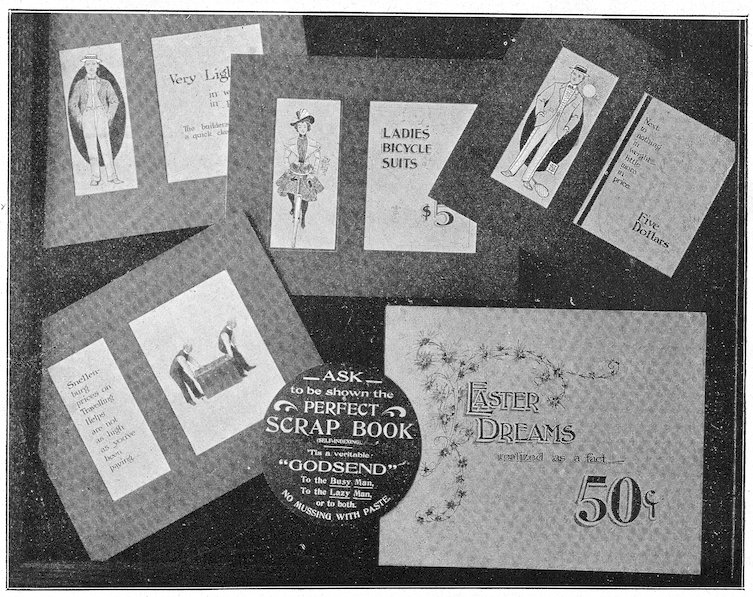 Very Ligh
in w
in p
The builders
a quick cle
LADIES'
BICYCLE
SUITS
$5
Next
to
nothing
in
weight,
little
more
in
price.
Five
Dollars
Snellen-
burg
prices on
Travelling
Helps
are not
as high
as you've
been
paying.
ASK
to be shown the
PERFECT
SCRAP BOOK
(SELF-INDEXING).
'Tis a veritable
"GODSEND"
To the Busy Man,
To the Lazy Man,
or to both.
NO MUSSING WITH PASTE.
EASTER
DREAMS
realized as a fact
50¢